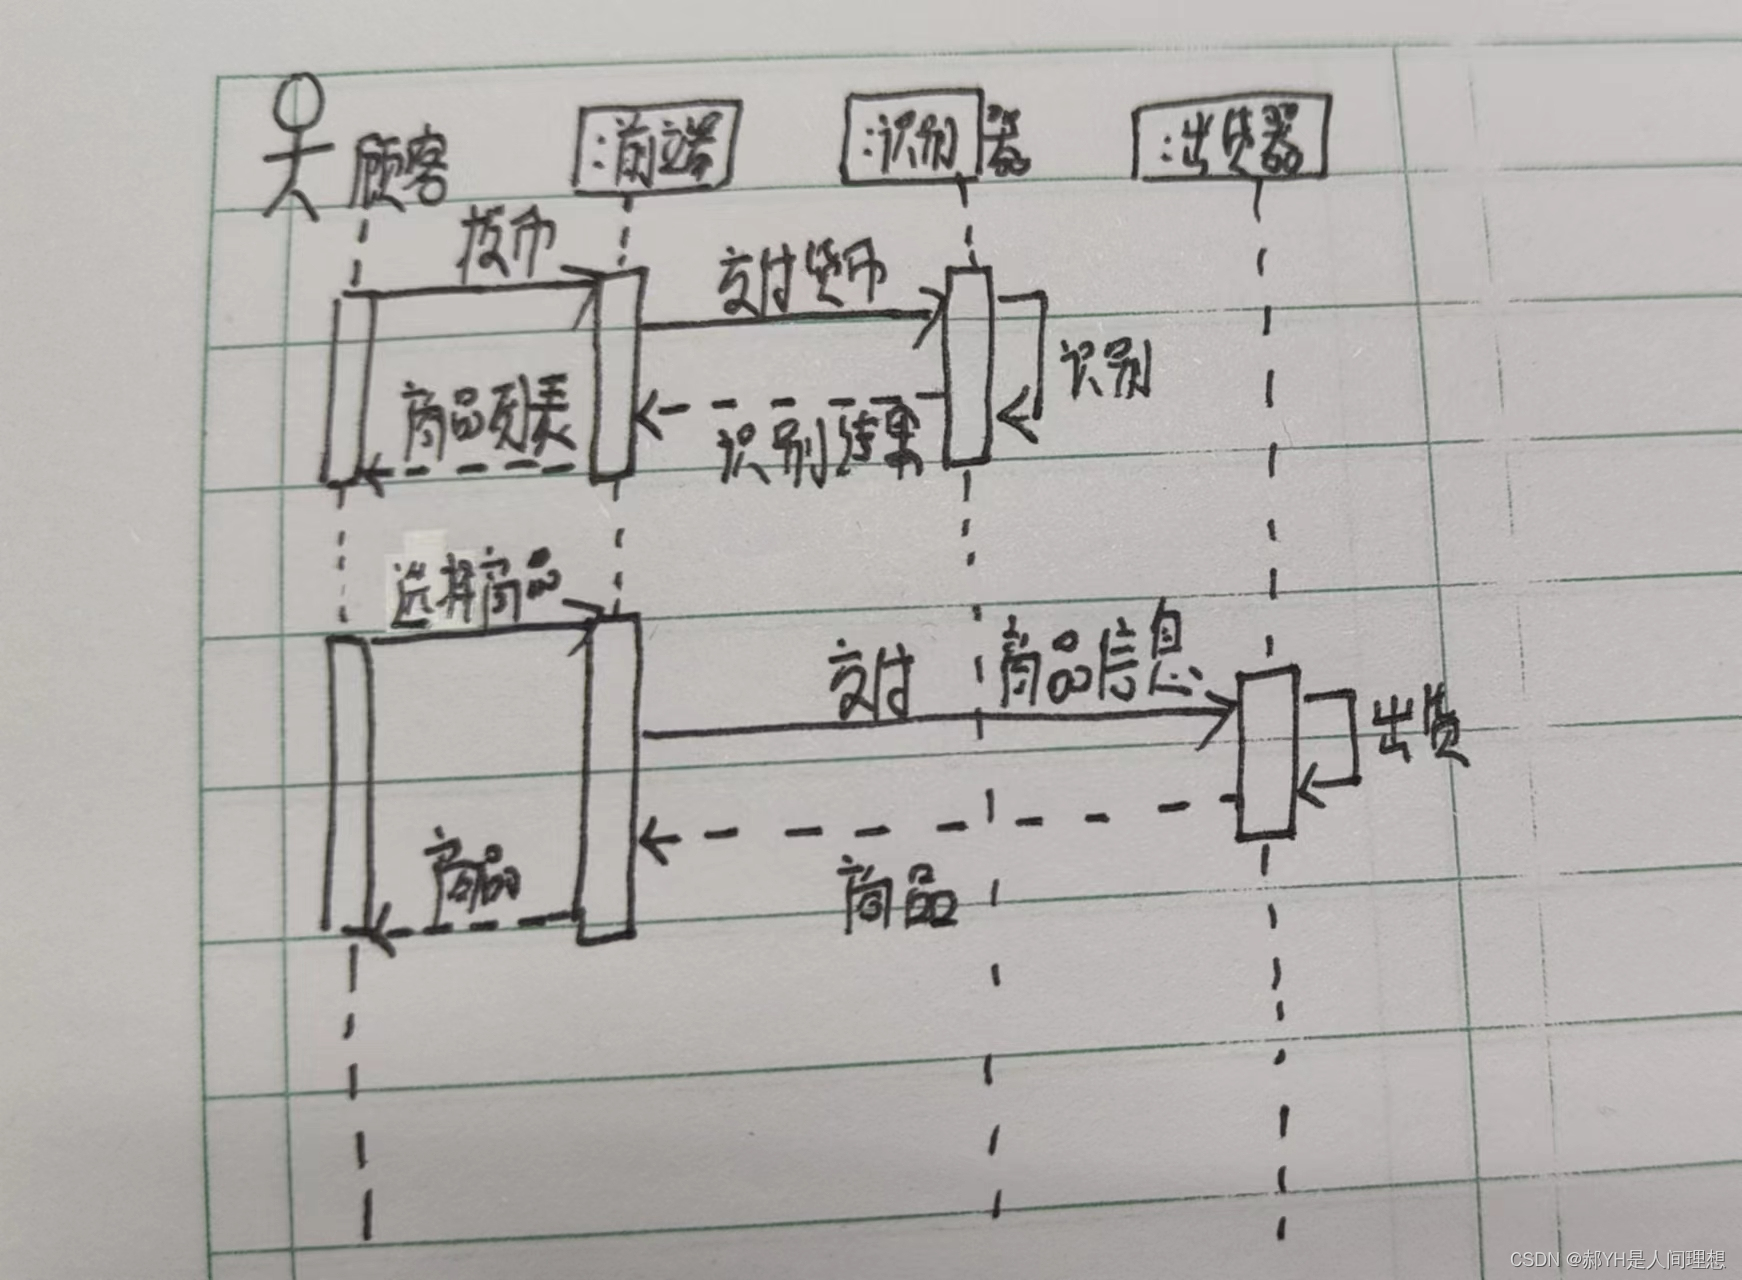 顾客
:前端
:识别器
:出货器
投币
交付货币
识别
商品列表
识别结果
选择商品
交付 商品信息
出货
商品
商品
CSDN @郝YH是人间理想